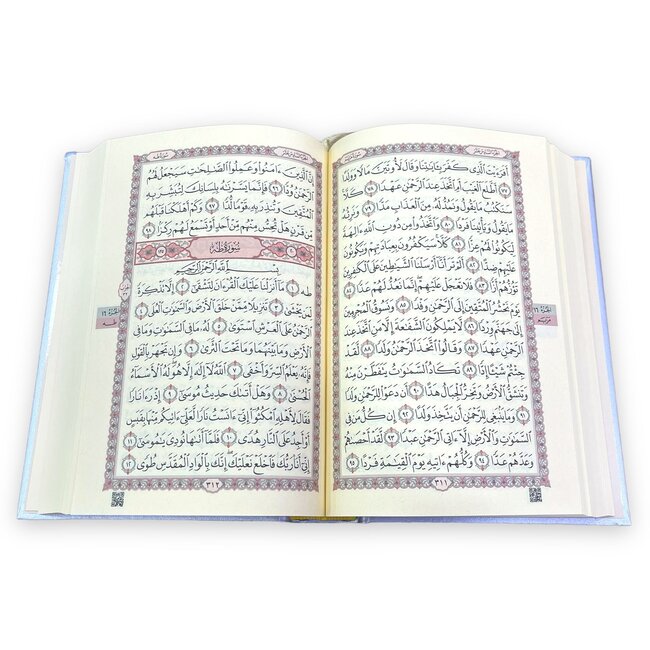 سورة مريم
الجزء السادس عشر
أَفَرَءَيْتَ ٱلَّذِى كَفَرَ بِـَٔايَـٰتِنَا وَقَالَ لَأُوتَيَنَّ مَالًا وَوَلَدًا ٧٧
أَطَّلَعَ ٱلْغَيْبَ أَمِ ٱتَّخَذَ عِندَ ٱلرَّحْمَـٰنِ عَهْدًا ٧٨ كَلَّا
سَنَكْتُبُ مَا يَقُولُ وَنَمُدُّ لَهُۥ مِنَ ٱلْعَذَابِ مَدًّا ٧٩ وَنَرِثُهُۥ
مَا يَقُولُ وَيَأْتِينَا فَرْدًا ٨٠ وَٱتَّخَذُوا۟ مِن دُونِ ٱللَّهِ ءَالِهَةً
لِّيَكُونُوا۟ لَهُمْ عِزًّا ٨١ كَلَّا سَيَكْفُرُونَ بِعِبَادَتِهِمْ وَيَكُونُونَ
عَلَيْهِمْ ضِدًّا ٨٢ أَلَمْ تَرَ أَنَّآ أَرْسَلْنَا ٱلشَّيَـٰطِينَ عَلَى ٱلْكَـٰفِرِينَ
تَؤُزُّهُمْ أَزًّا ٨٣ فَلَا تَعْجَلْ عَلَيْهِمْ إِنَّمَا نَعُدُّ لَهُمْ عَدًّا ٨٤
يَوْمَ نَحْشُرُ ٱلْمُتَّقِينَ إِلَى ٱلرَّحْمَـٰنِ وَفْدًا ٨٥ وَنَسُوقُ ٱلْمُجْرِمِينَ
إِلَىٰ جَهَنَّمَ وِرْدًا ٨٦ لَّا يَمْلِكُونَ ٱلشَّفَـٰعَةَ إِلَّا مَنِ ٱتَّخَذَ عِندَ
ٱلرَّحْمَـٰنِ عَهْدًا ٨٧ وَقَالُوا۟ ٱتَّخَذَ ٱلرَّحْمَـٰنُ وَلَدًا ٨٨ لَّقَدْ
جِئْتُمْ شَيْـًٔا إِدًّا ٨٩ تَكَادُ ٱلسَّمَـٰوَٰتُ يَتَفَطَّرْنَ مِنْهُ
وَتَنشَقُّ ٱلْأَرْضُ وَتَخِرُّ ٱلْجِبَالُ هَدًّا ٩٠ أَن دَعَوْا۟ لِلرَّحْمَـٰنِ وَلَدًا ٩١
وَمَا يَنۢبَغِى لِلرَّحْمَـٰنِ أَن يَتَّخِذَ وَلَدًا ٩٢ إِن كُلُّ مَن فِى
ٱلسَّمَـٰوَٰتِ وَٱلْأَرْضِ إِلَّآ ءَاتِى ٱلرَّحْمَـٰنِ عَبْدًا ٩٣ لَّقَدْ أَحْصَىٰهُمْ
وَعَدَّهُمْ عَدًّا ٩٤ وَكُلُّهُمْ ءَاتِيهِ يَوْمَ ٱلْقِيَـٰمَةِ فَرْدًا ٩٥
٣١١
الجزء ١٦
مريم
سورة طه
الجزء السادس عشر
إِنَّ ٱلَّذِينَ ءَامَنُوا۟ وَعَمِلُوا۟ ٱلصَّـٰلِحَـٰتِ سَيَجْعَلُ لَهُمُ
ٱلرَّحْمَـٰنُ وُدًّا ٩٦ فَإِنَّمَا يَسَّرْنَـٰهُ بِلِسَانِكَ لِتُبَشِّرَ بِهِ
ٱلْمُتَّقِينَ وَتُنذِرَ بِهِۦ قَوْمًا لُّدًّا ٩٧ وَكَمْ أَهْلَكْنَا قَبْلَهُم
مِّن قَرْنٍ هَلْ تُحِسُّ مِنْهُم مِّنْ أَحَدٍ أَوْ تَسْمَعُ لَهُمْ رِكْزًۢا ٩٨
سُورَةُ طه
بِسْمِ ٱللَّهِ ٱلرَّحْمَـٰنِ ٱلرَّحِيمِ
طه ١ مَآ أَنزَلْنَا عَلَيْكَ ٱلْقُرْءَانَ لِتَشْقَىٰٓ ٢ إِلَّا تَذْكِرَةً
لِّمَن يَخْشَىٰ ٣ تَنزِيلًا مِّمَّنْ خَلَقَ ٱلْأَرْضَ وَٱلسَّمَـٰوَٰتِ ٱلْعُلَى ٤
ٱلرَّحْمَـٰنُ عَلَى ٱلْعَرْشِ ٱسْتَوَىٰ ٥ لَهُۥ مَا فِى ٱلسَّمَـٰوَٰتِ وَمَا فِى
ٱلْأَرْضِ وَمَا بَيْنَهُمَا وَمَا تَحْتَ ٱلثَّرَىٰ ٦ وَإِن تَجْهَرْ بِٱلْقَوْلِ
فَإِنَّهُۥ يَعْلَمُ ٱلسِّرَّ وَأَخْفَى ٧ ٱللَّهُ لَآ إِلَـٰهَ إِلَّا هُوَ لَهُ ٱلْأَسْمَآءُ
ٱلْحُسْنَىٰ ٨ وَهَلْ أَتَىٰكَ حَدِيثُ مُوسَىٰٓ ٩ إِذْ رَءَا نَارًا
فَقَالَ لِأَهْلِهِ ٱمْكُثُوٓا۟ إِنِّىٓ ءَانَسْتُ نَارًا لَّعَلِّىٓ ءَاتِيكُم مِّنْهَا بِقَبَسٍ
أَوْ أَجِدُ عَلَى ٱلنَّارِ هُدًى ١٠ فَلَمَّآ أَتَىٰهَا نُودِىَ يَـٰمُوسَىٰٓ ١١
إِنِّىٓ أَنَا۠ رَبُّكَ فَٱخْلَعْ نَعْلَيْكَ إِنَّكَ بِٱلْوَادِ ٱلْمُقَدَّسِ طُوًى ١٢
٣١٢
الجزء ١٦
طه